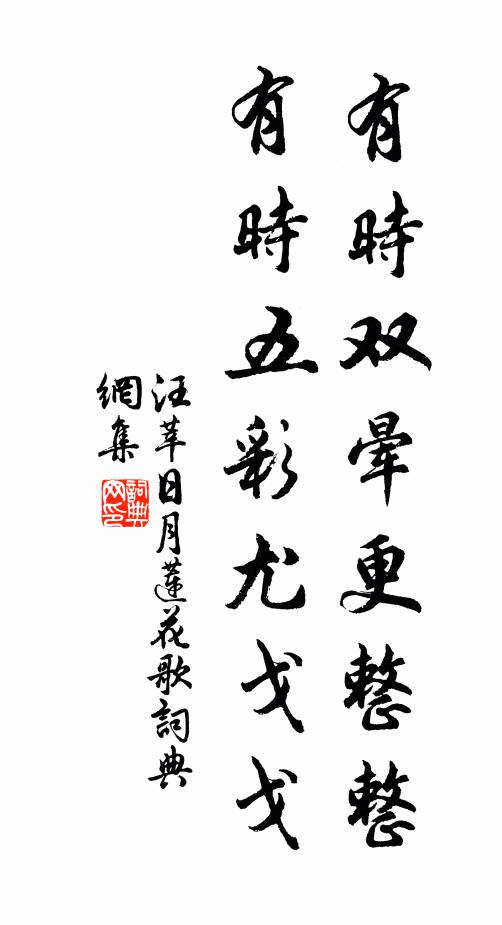 有時双暈更整整
有時五彩尤戈戈
汪莘日月蓮花歌詞典
網集
詞典
网印